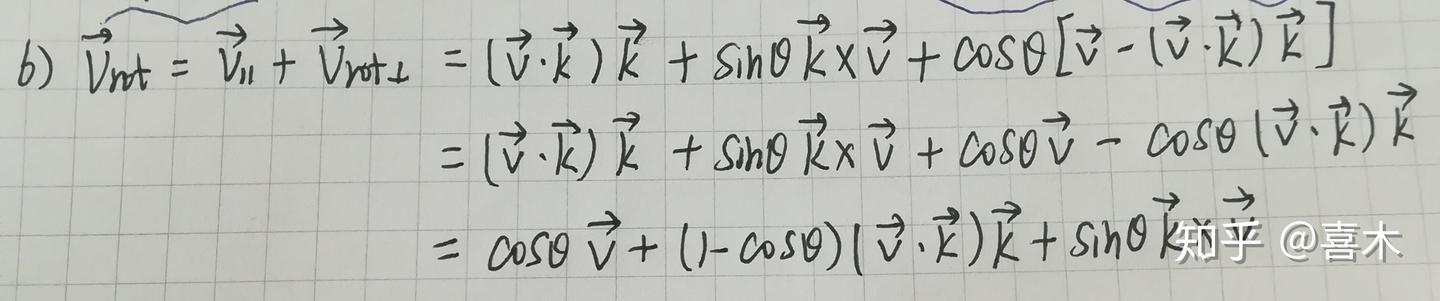 b) v⃗rot = v⃗∥ + v⃗rot⊥ = (v⃗·k⃗)k⃗ + sinθ k⃗×v⃗ + cosθ[v⃗ - (v⃗·k⃗)k⃗]
= (v⃗·k⃗)k⃗ + sinθ k⃗×v⃗ + cosθv⃗ - cosθ(v⃗·k⃗)k⃗
= cosθ v⃗ + (1-cosθ)(v⃗·k⃗)k⃗ + sinθ k⃗×v⃗
知乎 @喜木